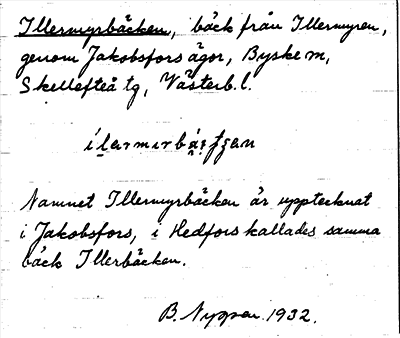 Illermyrbäcken, bäck från Illermyren,
genom Jakobsfors ägor, Byske m,
Skellefteå tg, Västerb. l.
Namnet Illermyrbäcken är upptecknat
i Jakobsfors, i Hedfors kallades samma
bäck Illerbäcken.
B. Nygren 1932.